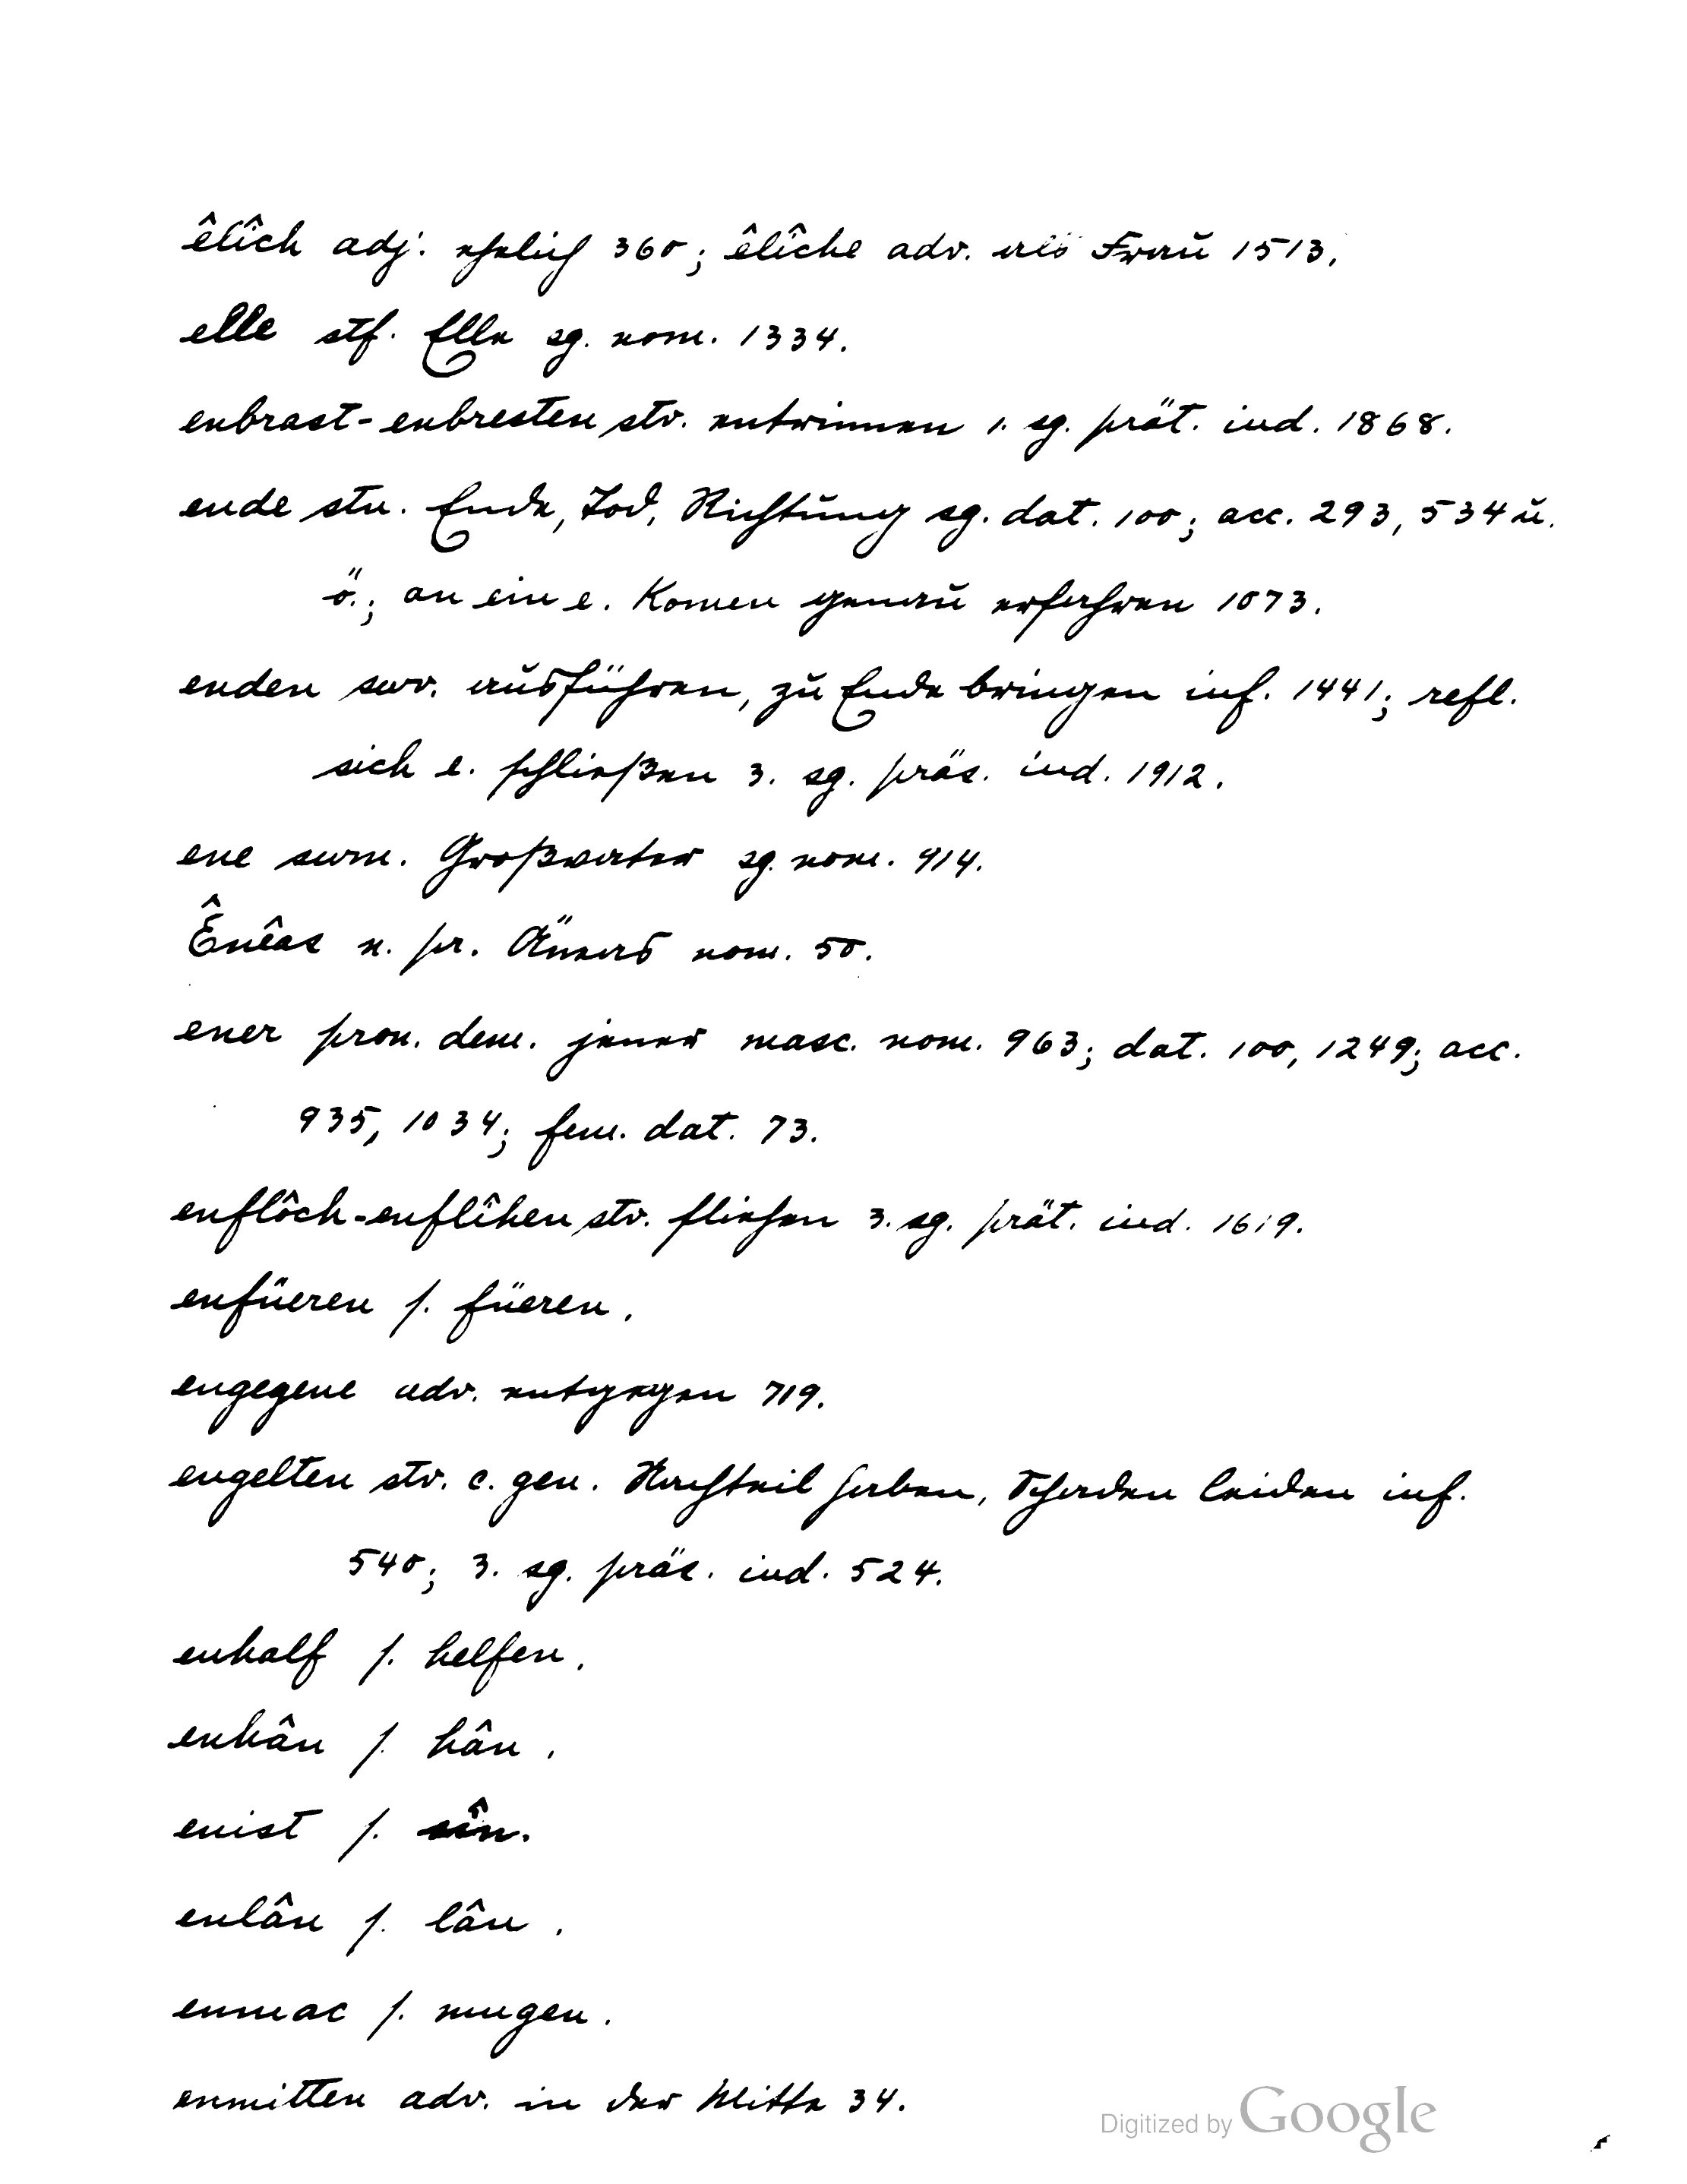 êlîch adj. ehelich 360; êlîche adv. als Frau 1513.
elle stf. Elle sg. nom. 1334.
enbrast-enbresten stv. entrinnen 1. sg. prät. ind. 1868.
ende stn. Ende, Tod, Richtung sg. dat. 100; acc. 293, 534 u.
ö.; an ein e. komen genau erfahren 1073.
enden swv. ausführen, zu Ende bringen inf. 1441; refl.
sich e. schließen 3. sg. präs. ind. 1912.
ene swm. Großvater sg. nom. 914.
Ênêas n. pr. Äneas nom. 50.
ener pron. dem. jener masc. nom. 963; dat. 100, 1249; acc.
935, 1034; fem. dat. 73.
enflôch-enflîhen stv. fliehen 3. sg. prät. ind. 1619.
enfüeren s. füeren.
engegene adv. entgegen 719.
engelten stv. c. gen. Nachteil haben, Schaden leiden inf.
540; 3. sg. präs. ind. 524.
enhalf s. helfen.
enhân s. hân.
enist s. sîn.
enlân s. lân.
enmac s. mugen.
enmitten adv. in der Mitte 34.
Digitized by Google